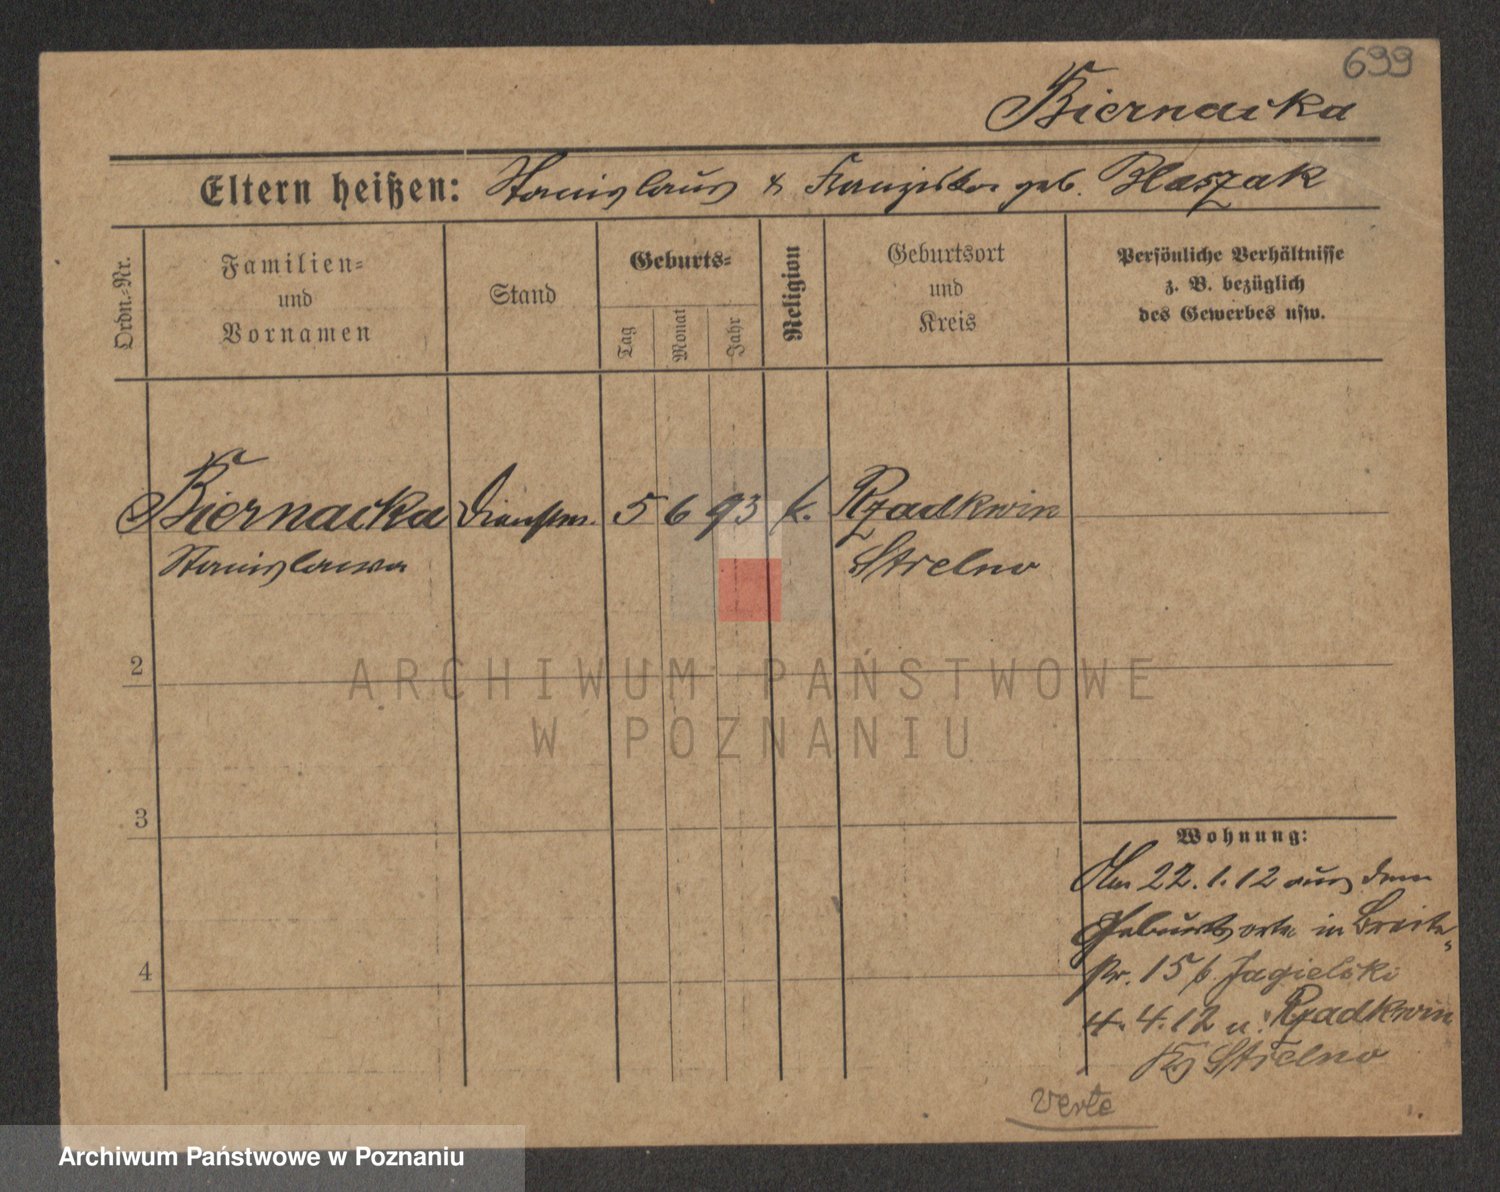 699
Biernacka
Eltern heißen: Stanislaus & Franziska geb. Blaszak
Ordn.-Nr.
Familien-
und
Vornamen
Stand
Geburts-
Tag
Monat
Jahr
Religion
Geburtsort
und
Kreis
Persönliche Verhältnisse
z. B. bezüglich
des Gewerbes usw.
Biernacka Dienstm. 5 6 93 k. Rzadkwin
Stanislawa Strelno
2
3
4
Wohnung:
Am 22.1.12 aus dem
Geburtsorte in Breite-
str. 15 b. Jagielski
4.4.12 n. Rzadkwin
Kr Strelno
verte
ARCHIWUM PAŃSTWOWE
W POZNANIU
Archiwum Państwowe w Poznaniu